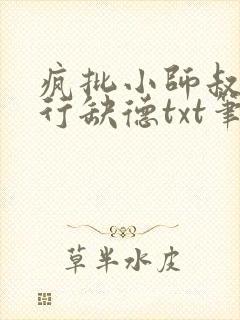 疯批小師叔
行缺德txt筆
草半水皮